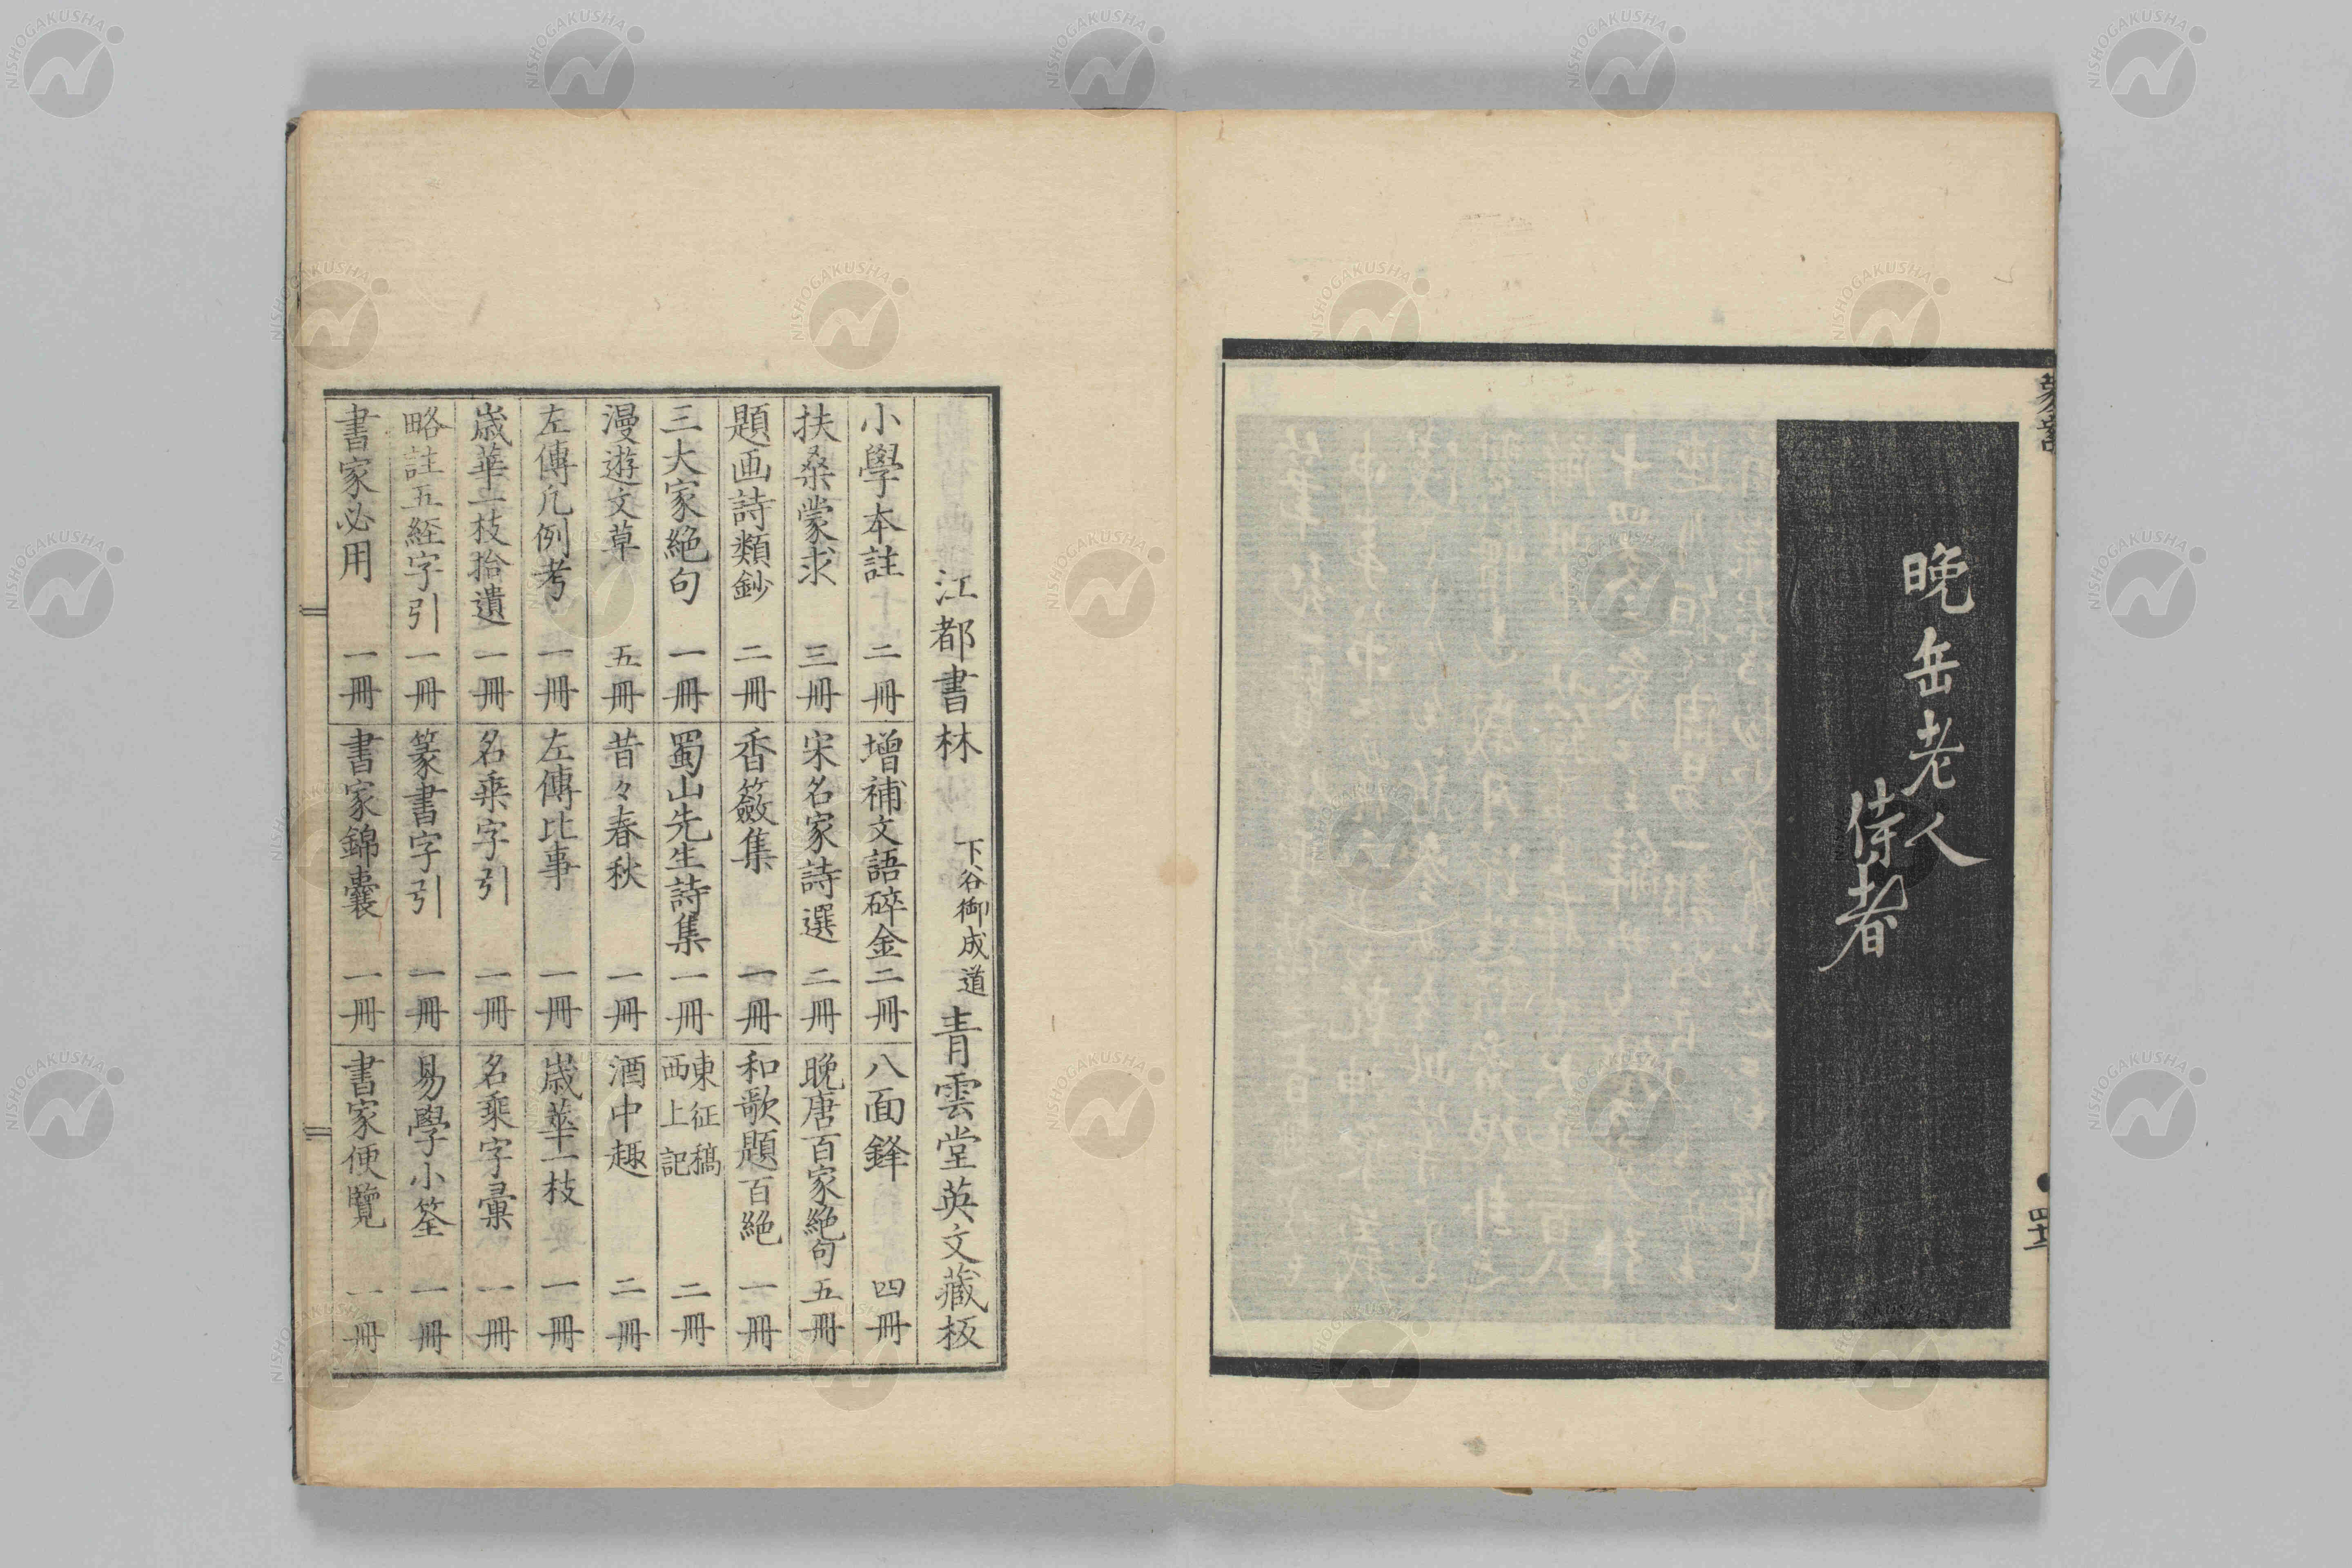 晩岳老人
侍者
江都書林 下谷御成道 青雲堂英文藏板
小學本註 二冊
増補文語碎金 二冊
八面鋒 四冊
扶桑蒙求 三冊
宋名家詩選 二冊
晩唐百家絶句 五冊
題画詩類鈔 二冊
香籢集 一冊
和歌題百絶 一冊
三大家絶句 一冊
蜀山先生詩集 一冊
東征稿
西上記 二冊
漫遊文草 五冊
昔々春秋 一冊
酒中趣 二冊
左傳凡例考 一冊
左傳比事 一冊
歳華一枝 一冊
歳華一枝拾遺 一冊
名乗字引 一冊
名乗字彙 一冊
略註五経字引 一冊
篆書字引 一冊
易學小筌 一冊
書家必用 一冊
書家錦嚢 一冊
書家便覽 一冊